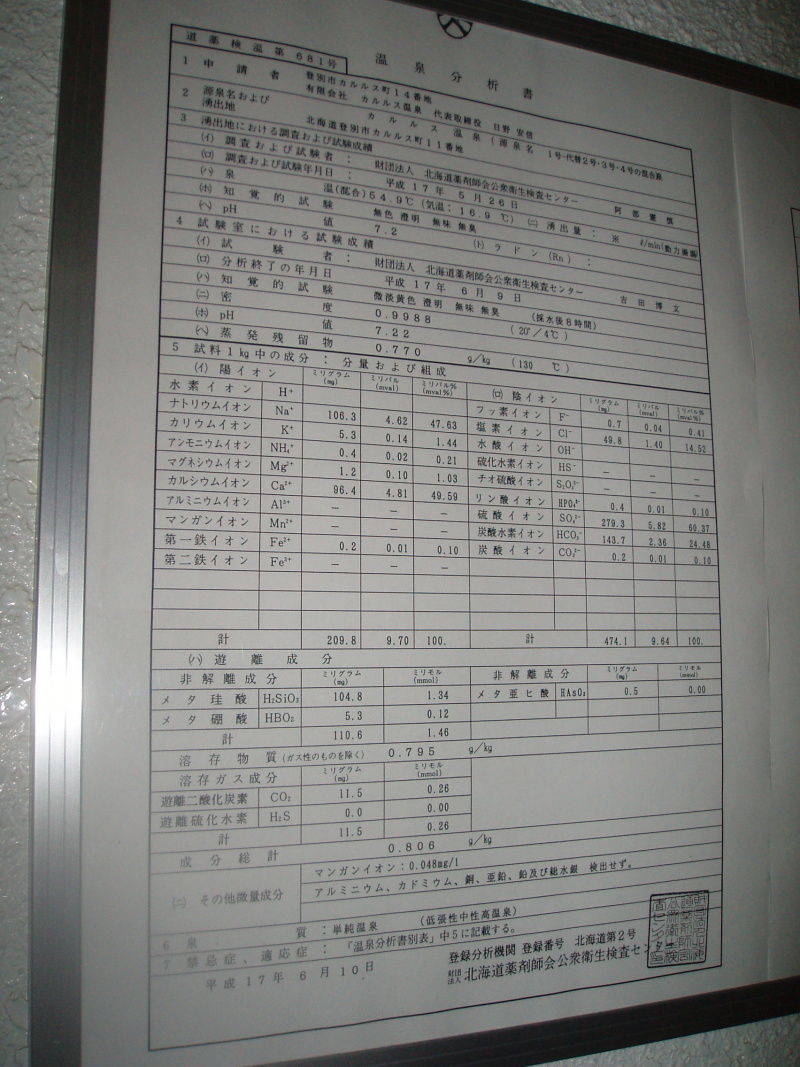 道薬検温第681号
温泉分析書
1 申請者 登別市カルルス町14番地
有限会社 カルルス温泉 代表取締役 日野 安信
2 源泉名および湧出地 カルルス温泉(源泉名 1号・代替2号・3号・4号の混合泉
北海道登別市カルルス町11番地
3 湧出地における調査および試験成績
(イ) 調査および試験者: 財団法人 北海道薬剤師会公衆衛生検査センター 阿部 憲慎
(ロ) 調査および試験年月日: 平成17年5月26日
(ハ) 泉温(混合)54.9℃(気温:16.9℃) (ニ) 湧出量: ※ ℓ/min(動力揚湯)
(ホ) 知覚的試験 無色 澄明 無味 無臭
(ヘ) pH値 7.2 (ト) ラドン(Rn):
4 試験室における試験成績
(イ) 試験者: 財団法人 北海道薬剤師会公衆衛生検査センター 吉田 博文
(ロ) 分析終了の年月日 平成17年6月9日
(ハ) 知覚的試験 微淡黄色 澄明 無味 無臭 (採水後8時間)
(ニ) 密度 0.9988 (20°/4℃)
(ホ) pH値 7.22
(ヘ) 蒸発残留物 0.770 g/kg (130 ℃)
5 試料1kg中の成分:分量および組成
(イ) 陽イオン ミリグラム(mg) ミリバル(mval) ミリバル%(mval%)
水素イオン H⁺
ナトリウムイオン Na⁺ 106.3 4.62 47.63
カリウムイオン K⁺ 5.3 0.14 1.44
アンモニウムイオン NH₄⁺ 0.4 0.02 0.21
マグネシウムイオン Mg²⁺ 1.2 0.10 1.03
カルシウムイオン Ca²⁺ 96.4 4.81 49.59
アルミニウムイオン Al³⁺ − − −
マンガンイオン Mn²⁺ − − −
第一鉄イオン Fe²⁺ 0.2 0.01 0.10
第二鉄イオン Fe³⁺ − − −
計 209.8 9.70 100.
(ロ) 陰イオン ミリグラム(mg) ミリバル(mval) ミリバル%(mval%)
フッ素イオン F⁻ 0.7 0.04 0.41
塩素イオン Cl⁻ 49.8 1.40 14.52
水酸イオン OH⁻
硫化水素イオン HS⁻ − − −
チオ硫酸イオン S₂O₃²⁻ − − −
リン酸イオン HPO₄²⁻ 0.4 0.01 0.10
硫酸イオン SO₄²⁻ 279.3 5.82 60.37
炭酸水素イオン HCO₃⁻ 143.7 2.36 24.48
炭酸イオン CO₃²⁻ 0.2 0.01 0.10
計 474.1 9.64 100.
(ハ) 遊離成分
非解離成分 ミリグラム(mg) ミリモル(mmol)
メタ珪酸 H₂SiO₃ 104.8 1.34
メタ硼酸 HBO₂ 5.3 0.12
計 110.6 1.46
非解離成分 ミリグラム(mg) ミリモル(mmol)
メタ亜ヒ酸 HAsO₂ 0.5 0.00
溶存物質(ガス性のものを除く) 0.795 g/kg
溶存ガス成分 ミリグラム(mg) ミリモル(mmol)
遊離二酸化炭素 CO₂ 11.5 0.26
遊離硫化水素 H₂S 0.0 0.00
計 11.5 0.26
成分総計 0.806 g/kg
(ニ) その他微量成分 マンガンイオン:0.048mg/l
アルミニウム、カドミウム、銅、亜鉛、鉛及び総水銀 検出せず。
6 泉質:単純温泉 (低張性中性高温泉)
7 禁忌症、適応症:「温泉分析書別表」中5に記載する。
平成17年6月10日
登録分析機関 登録番号 北海道第2号
財団法人 北海道薬剤師会公衆衛生検査センター